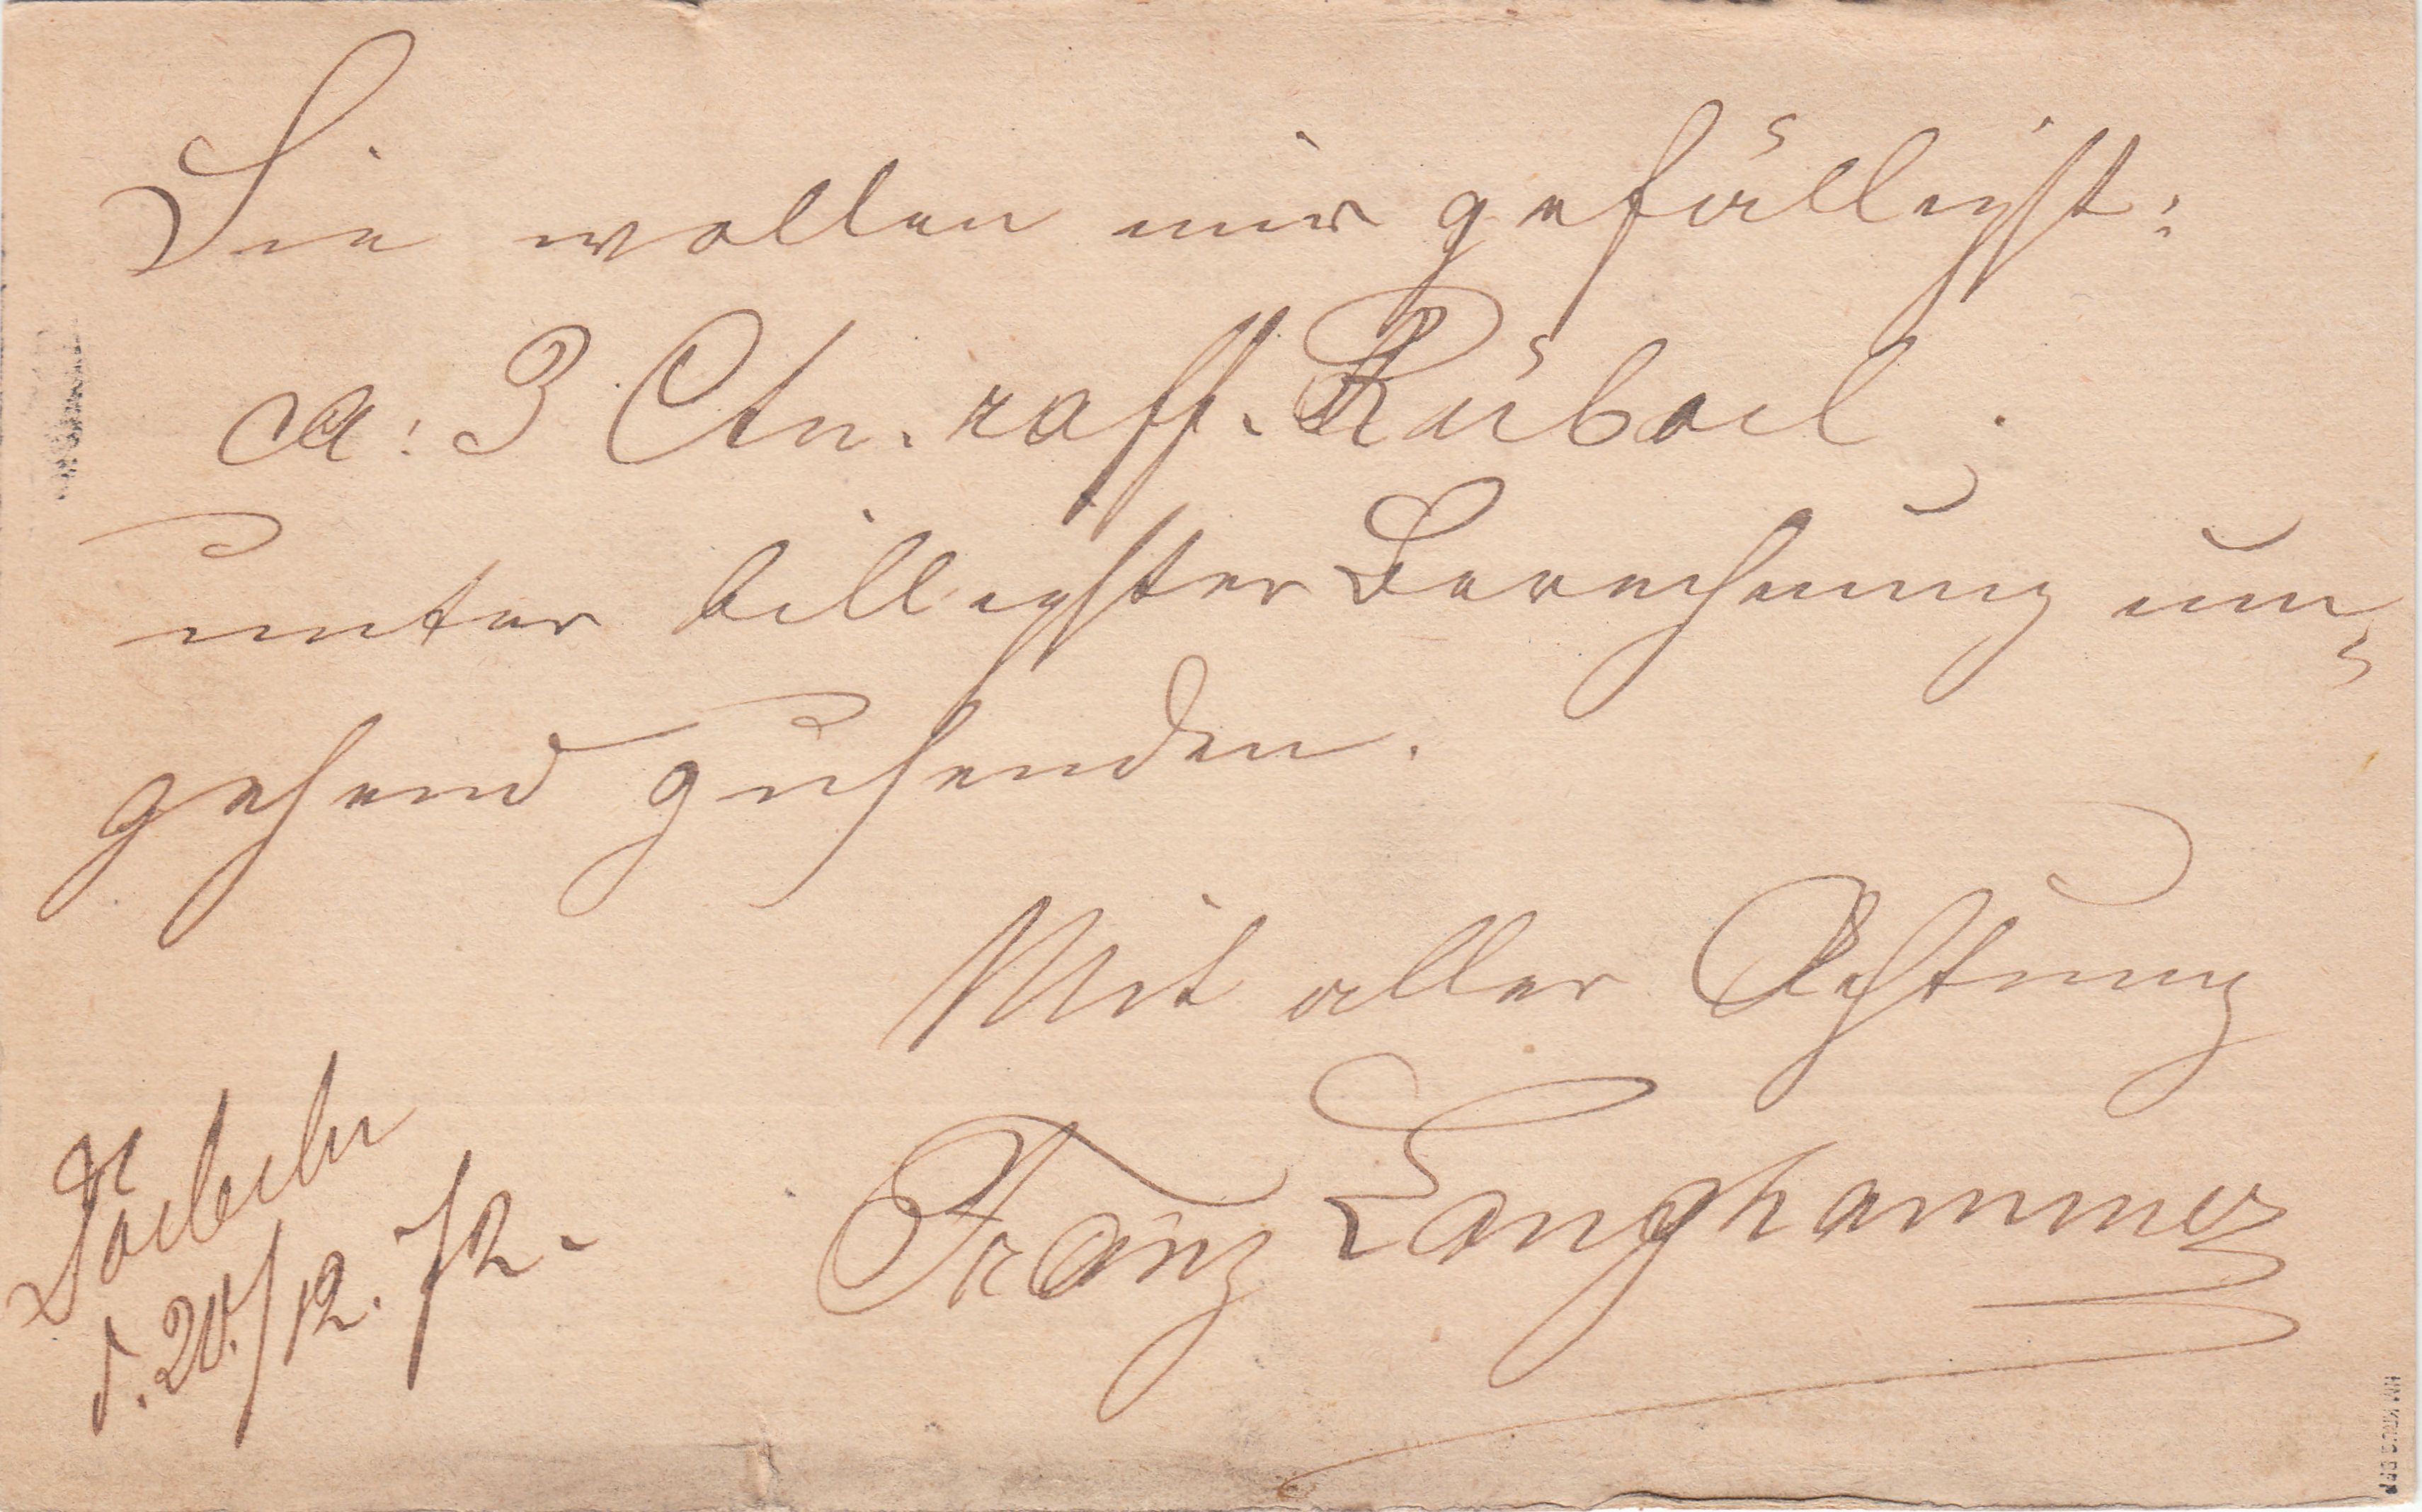 Sie wollen mir gefälligst:
ca: 3 Ctn. raff. Rüboel,
unter billigster Berechnung um-
gehend zusenden.
Mit aller Achtung
Franz Langhammer
d. 20./12. 72.